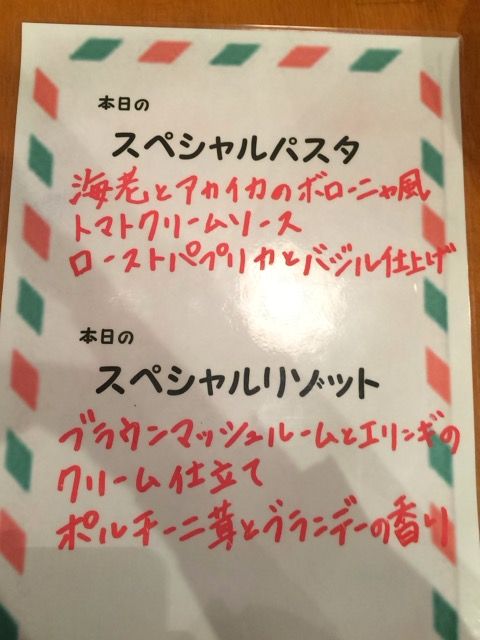 本日の
スペシャルパスタ
海老とアカイカのボローニャ風
トマトクリームソース
ローストパプリカとバジル仕上げ
本日の
スペシャルリゾット
ブラウンマッシュルームとエリンギの
クリーム仕立て
ポルチーニ茸とブランデーの香り